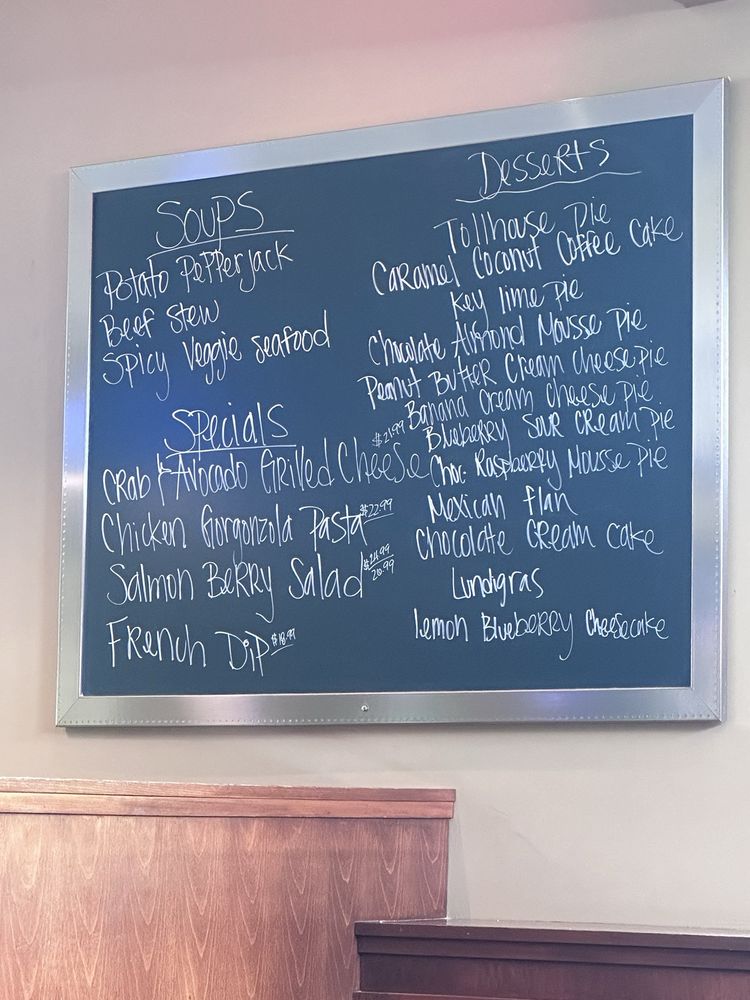 Soups
Potato Pepperjack
Beef Stew
Spicy Veggie seafood
Specials
Crab & Avocado Grilled Cheese $21.99
Chicken Gorgonzola Pasta $22.99
Salmon Berry Salad $14.99
20.99
French Dip $18.99
Desserts
Tollhouse Pie
Caramel Coconut Coffee Cake
Key lime Pie
Chocolate Almond Mousse Pie
Peanut Butter Cream Cheese Pie
Banana Cream Cheese Pie
Blueberry Sour Cream Pie
Choc. Raspberry Mousse Pie
Mexican flan
Chocolate Cream Cake
Lundigras
lemon Blueberry Cheesecake